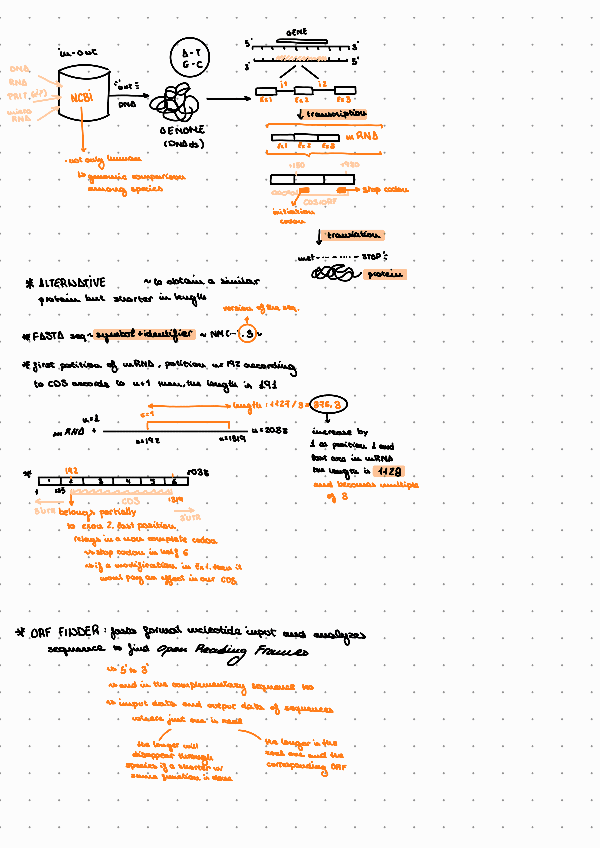 in-out
DNA
RNA
NCBI
micro RNA
"out"
DNA
A-T
G-C
GENOME
(DNA ds)
GENE
5' 3'
3' 5'
i1 i2
Ex1 Ex2 Ex3
transcription
mRNA
Ex1 Ex2 Ex3
CDS/ORF
stop codon
initiation codon
translation
met STOP
protein
not only human
↳ genomic comparison
among species
* ALTERNATIVE ~ to obtain a similar
protein but shorter in length
version of the seq.
* FASTA seq ~ symbol + identifier ~ NM(-- .3 ~
* first position of mRNA, position n=192 according
to CDS accords to n=1 then, the length is 191
length: 1127 / 3 = 375,3
n=1
n=1
mRNA + n=2038
n=192 n=1319
increase by
1 as position 1 and
last are in mRNA
the length is 1128
and becomes multiple
of 3
* 192 2038
1 2 3 4 5 6
1 1319
CDS
5'UTR 3'UTR
belongs partially
to exon 2, last position
relays in a non complete codon
↳ stop codon in half 6
↳ if a modification in Ex1, then it
wont pay an effect in our CDS
* ORF FINDER: fasta format nucleotide input and analyzes
sequence to find Open Reading Frames
↳ 5' to 3'
↳ and in the complementary sequence too
↳ input data and output data of sequences
where just one is real
the longer will
disappear through
species if a shorter w/
same function is done
the longer is the
real one and the
corresponding ORF